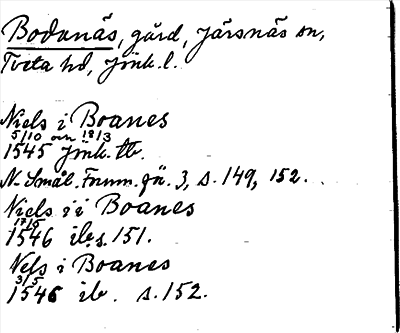 Bodanäs, gård, Järsnäs sn,
Tveta hd, Jönk. l.
Niels i Boanes
5/10 om 18/3
1545 Jönk. tb.
N. Smål. Fornm. för. 3, s. 149, 152.
Niels i Boanes
17/5
1546 ib. s. 151.
Nels i Boanes
3/5
1546 ib. s. 152.